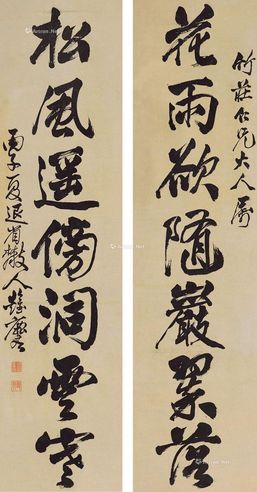 竹莊仁兄大人屬
花雨欲隨巖翠落
松風遥傍洞雲寒
丙子夏退省散人